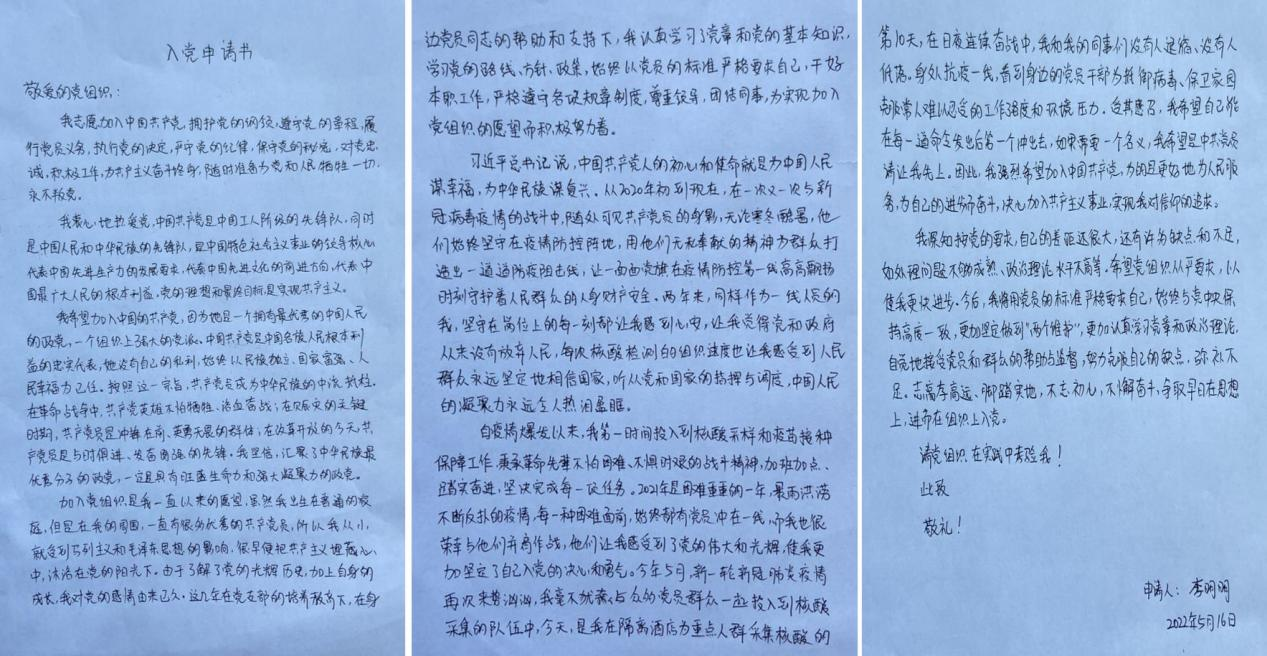 入党申请书
敬爱的党组织:
我志愿加入中国共产党,拥护党的纲领,遵守党的章程,履
行党员义务,执行党的决定,严守党的纪律,保守党的秘密,对党忠
诚,积极工作,为共产主义奋斗终身,随时准备为党和人民牺牲一切,
永不叛党。
我衷心地热爱党,中国共产党是中国工人阶级的先锋队,同时
是中国人民和中华民族的先锋队,是中国特色社会主义事业的领导核心
代表中国先进生产力的发展要求,代表中国先进文化的前进方向,代表中
国最广大人民的根本利益。党的理想和最终目标是实现共产主义。
我希望加入中国的共产党,因为她是一个拥有最优秀的中国人民
的政党,一个组织上强大的党派。中国共产党是中国各族人民根本利
益的忠实代表,她没有自己的私利,始终以民族独立、国家富强、人
民幸福为己任。按照这一宗旨,共产党员成为中华民族的中流砥柱。
在革命战争中,共产党英雄不怕牺牲、浴血奋战;在赈灾的关键
时期,共产党员是冲锋在前、英勇无畏的群体;在改革开放的今天,共
产党员是与时俱进、发奋图强的先锋。我坚信,汇聚了中华民族最
优秀分子的政党,一定具有旺盛生命力和强大凝聚力的政党。
加入党组织是我一直以来的愿望,虽然我出生在普通的家
庭,但是在我的周围,一直有很多优秀的共产党员,所以我从小
就受到马列主义和毛泽东思想的影响,很早便把共产主义埋藏心
中,沐浴在党的阳光下。由于了解了党的光辉历史,加上自身的
成长,我对党的感情由来已久。这几年在党支部的培养教育下,在身
边党员同志的帮助和支持下,我认真学习了党章和党的基本知识,
学习党的路线、方针、政策,始终以党员的标准严格要求自己,干好
本职工作,严格遵守各项规章制度,尊重领导,团结同事,为实现加入
党组织的愿望而积极努力着。
习近平总书记说,中国共产党人的初心和使命就是为中国人民
谋幸福,为中华民族谋复兴。从2020年初到现在,在一次又一次与新
冠病毒疫情的战斗中,随处可见共产党员的身影,无论寒冬酷暑,他
们始终坚守在疫情防控阵地,用他们无私奉献的精神为群众打
造出一道道防疫阻击线,让一面面党旗在疫情防控第一线高高飘扬
时刻守护着人民群众的人身财产安全。两年来,同样作为一线人员的
我,坚守在岗位上的每一刻都让我感到心安,让我觉得党和政府
从未没有放弃人民,每次核酸检测的组织速度也让我感受到人民
群众永远坚定地相信国家,听从党和国家的指挥与调度,中国人民
的凝聚力永远令人热泪盈眶。
自疫情爆发以来,我第一时间投入到核酸采样和疫苗接种
保障工作,秉承革命先辈不怕困难、不惧时艰的战斗精神,加班加点、
踏实奋进,坚决完成每一项任务。2021年是困难重重的一年,暴雨洪涝
不断反扑的疫情,每一种困难面前,始终都有党员冲在一线,而我也很
荣幸与他们并肩作战,他们让我感受到了党的伟大和光辉,使我更
加坚定了自己入党的决心和勇气。今年5月,新一轮新冠肺炎疫情
再次来势汹汹,我毫不犹豫与众的党员群众一起投入到核酸
采集的队伍中,今天,是我在隔离酒店为重点人群采集核酸的
第10天,在日夜连续奋战中,我和我的同事们没有人退缩、没有人
低落,身处抗疫一线,看到身边的党员干部为抵御病毒、保卫家园
克服常人难以忍受的工作强度和环境压力。受其感召,我希望自己能
在每一道命令发出后第一个冲出去,如果需要一个名义,我希望是中共党员
请让我先上。因此,我强烈希望加入中国共产党,为的是更好地为人民服
务,为自己的进步而奋斗,决心加入共产主义事业,实现我对信仰的追求。
我深知按党的要求,自己的差距还很大,还有许多缺点和不足,
如处理问题不够成熟、政治理论水平不高等。希望党组织从严要求,以
使我更快进步。今后,我将用党员的标准严格要求自己,始终与党中央保
持高度一致,更加坚定做到“两个维护”,更加认真学习党章和政治理论,
自觉地接受党员和群众的帮助与监督,努力克服自己的缺点,弥补不
足。志高存高远、脚踏实地,不忘初心,不懈奋斗,争取早日在思想
上,进而在组织上入党。
请党组织在实践中考验我!
此致
敬礼!
申请人:李明明
2022年5月16日